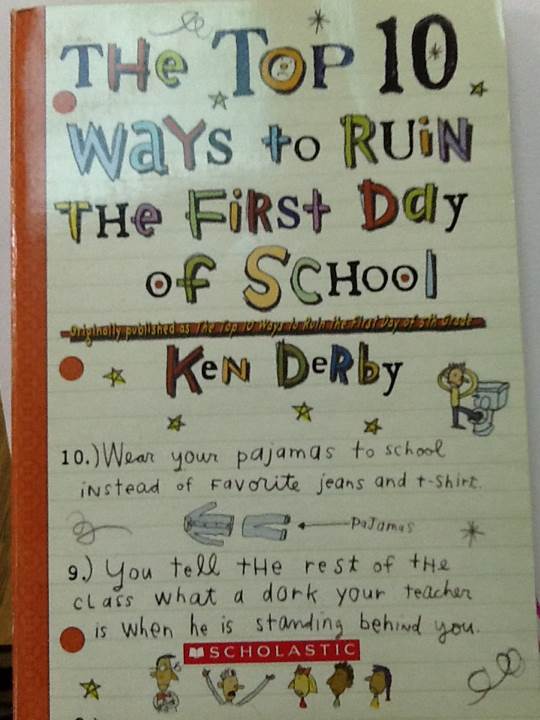 The Top 10
Ways to Ruin
The First Day
of School
Originally published as The Top 10 Ways to Ruin the First Day of 5th Grade
Ken Derby
10.) Wear your pajamas to school
instead of favorite jeans and t-shirt.
pajamas
9.) You tell the rest of the
class what a dork your teacher
is when he is standing behind you.
SCHOLASTIC